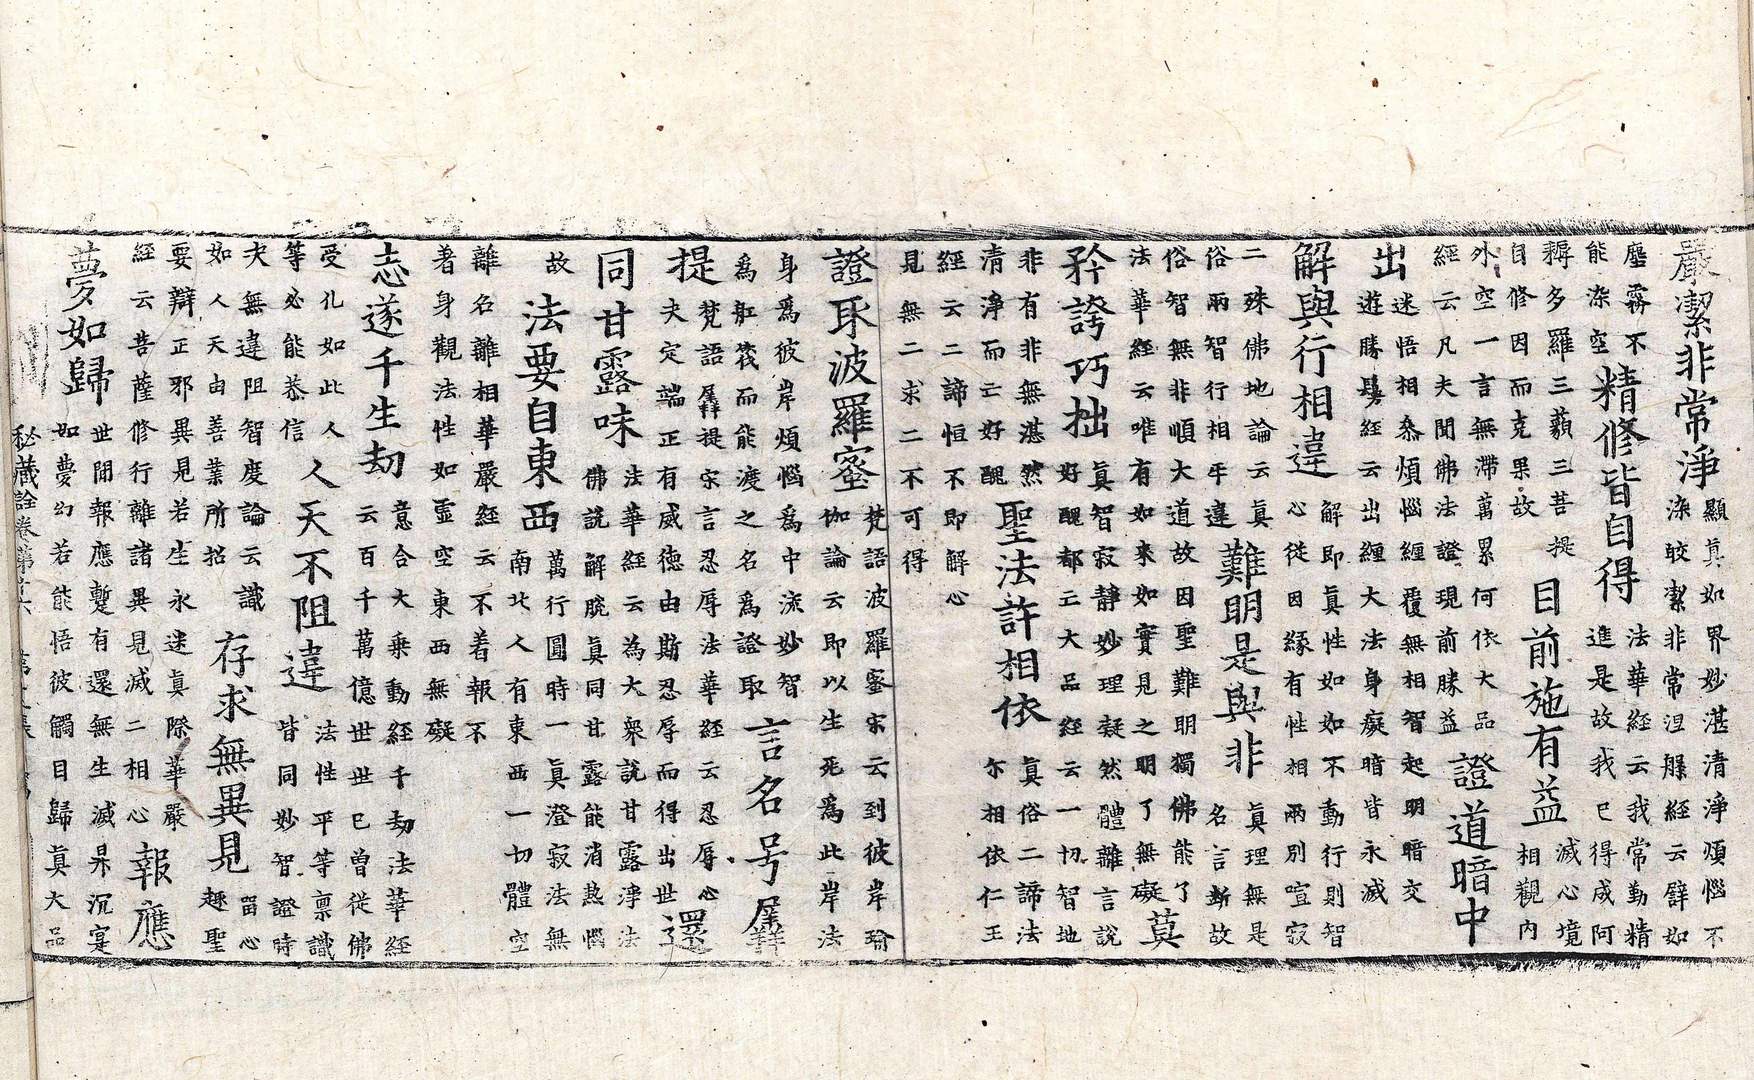 嚴潔非常淨
顯真如界妙湛清淨煩惱不
染皎潔非常涅槃經云譬如
塵霧不
能染空
精修皆自得
法華經云我常勤精
進是故我已得成阿
耨多羅三藐三菩提
自修因而克果故
目前施有益
滅心境
相觀內
外空一言無滯萬累何依大品
經云凡夫聞佛法證現前勝益
證道暗中
出
迷悟相叅煩惱經覆無相智起明暗交
遊勝鬘經云出纏大法身癡暗皆永滅
解與行相違
解即真性如如不動行則智
心從因緣有性相兩別喧寂
二殊佛地論云真
俗兩智行相乖違
難明是與非
真理無是
名言斷故
俗智無非順大道故因聖難明獨佛能了
法華經云唯有如來如實見之明了無礙
莫
矜誇巧拙
真智寂靜妙理凝然體離言說
好醜都亡大品經云一切智地
非有非無湛然
清淨而亡好醜
聖法許相依
真俗二諦法
尒相依仁王
經云二諦恒不即解心
見無二求二不可得
證取波羅蜜
梵語波羅蜜宋云到彼岸瑜
伽論云即以生死為此岸法
身為彼岸煩惱為中流妙智
為舡筏而能渡之名為證取
言名号羼
提
梵語羼提宋言忍辱法華經云忍辱心
決定端正有威德由斯忍辱而得出世
還
同甘露味
法華經云為大衆說甘露淨法
佛說解脫真同甘露能消熱惱
故
法要自東西
萬行圓時一真澄寂法無
南北人有東西一切體空
離名離相華嚴經云不着報不
著身觀法性如虛空東西無礙
志遂千生劫
意合大乗動經千劫法華經
云百千萬億世世已曾從佛
受化如此人
等必能恭信
人天不阻違
法性平等禀識
皆同妙智證時
決無違阻智度論云識
如人天由善業所招
存求無異見
留心
趣聖
要辯正邪異見若生永迷真際華嚴
經云菩薩修行離諸異見滅二相心
報應
夢如歸
世間報應蹔有還無生滅昇沉寔
如夢幻若能悟彼觸目歸真大品
秘藏詮卷第十六